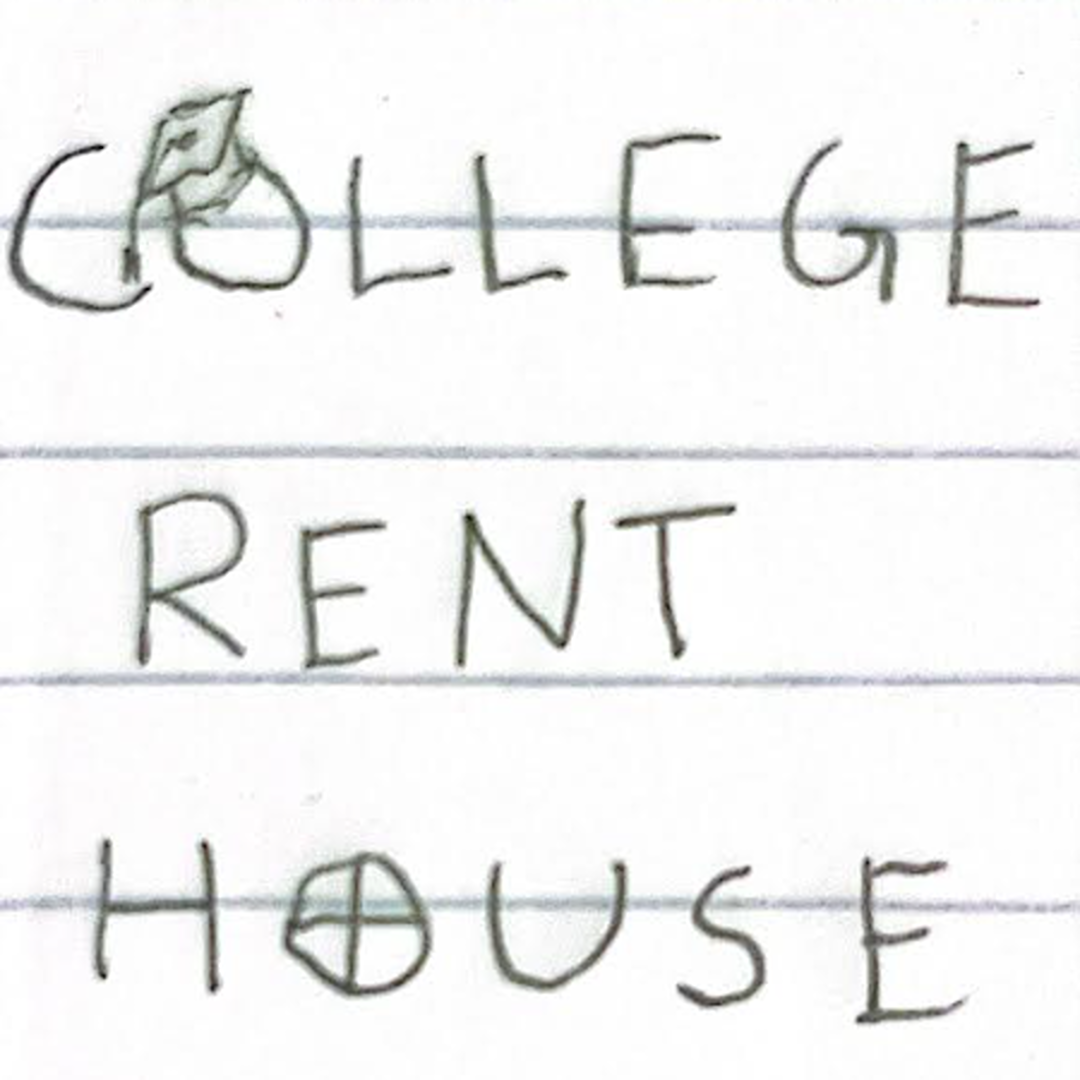 COLLEGE
RENT
HOUSE